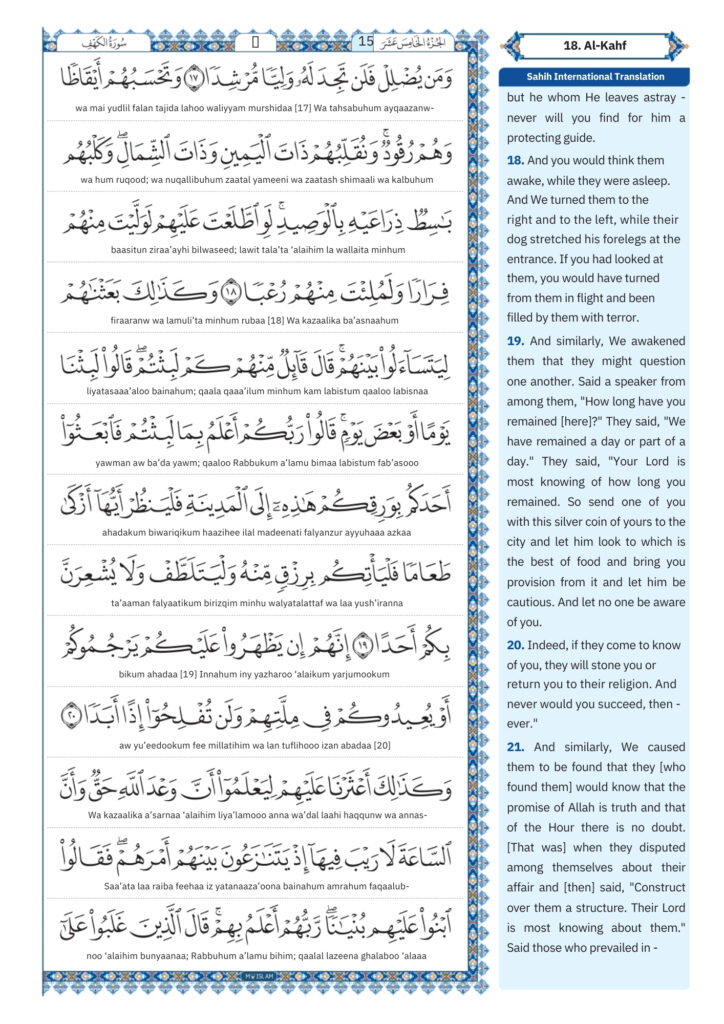 سُورَةُ الكَهْفِ
15
الجُزْءُ الخَامِسَ عَشَرَ
وَمَن يُضْلِلْ فَلَن تَجِدَ لَهُۥ وَلِيًّا مُّرْشِدًا ١٧ وَتَحْسَبُهُمْ أَيْقَاظًا
wa mai yudlil falan tajida lahoo waliyyam murshidaa [17] Wa tahsabuhum ayqaazanw-
وَهُمْ رُقُودٌ ۚ وَنُقَلِّبُهُمْ ذَاتَ ٱلْيَمِينِ وَذَاتَ ٱلشِّمَالِ ۖ وَكَلْبُهُم
wa hum ruqood; wa nuqallibuhum zaatal yameeni wa zaatash shimaali wa kalbuhum
بَـٰسِطٌ ذِرَاعَيْهِ بِٱلْوَصِيدِ ۚ لَوِ ٱطَّلَعْتَ عَلَيْهِمْ لَوَلَّيْتَ مِنْهُمْ
baasitun ziraa'ayhi bilwaseed; lawit tala'ta 'alaihim la wallaita minhum
فِرَارًا وَلَمُلِئْتَ مِنْهُمْ رُعْبًا ١٨ وَكَذَٰلِكَ بَعَثْنَـٰهُمْ
firaaranw wa lamuli'ta minhum rubaa [18] Wa kazaalika ba'asnaahum
لِيَتَسَآءَلُوا۟ بَيْنَهُمْ ۚ قَالَ قَآئِلٌ مِّنْهُمْ كَمْ لَبِثْتُمْ ۖ قَالُوا۟ لَبِثْنَا
liyatasaaa'aloo bainahum; qaala qaaa'ilum minhum kam labistum qaaloo labisnaa
يَوْمًا أَوْ بَعْضَ يَوْمٍ ۚ قَالُوا۟ رَبُّكُمْ أَعْلَمُ بِمَا لَبِثْتُمْ فَٱبْعَثُوٓا۟
yawman aw ba'da yawm; qaaloo Rabbukum a'lamu bimaa labistum fab'asooo
أَحَدَكُم بِوَرِقِكُمْ هَـٰذِهِۦٓ إِلَى ٱلْمَدِينَةِ فَلْيَنظُرْ أَيُّهَآ أَزْكَىٰ
ahadakum biwariqikum haazihee ilal madeenati falyanzur ayyuhaaa azkaa
طَعَامًا فَلْيَأْتِكُم بِرِزْقٍ مِّنْهُ وَلْيَتَلَطَّفْ وَلَا يُشْعِرَنَّ
ta'aaman falyaatikum birizqim minhu walyatalattaf wa laa yush'iranna
بِكُمْ أَحَدًا ١٩ إِنَّهُمْ إِن يَظْهَرُوا۟ عَلَيْكُمْ يَرْجُمُوكُمْ
bikum ahadaa [19] Innahum iny yazharoo 'alaikum yarjumookum
أَوْ يُعِيدُوكُمْ فِى مِلَّتِهِمْ وَلَن تُفْلِحُوٓا۟ إِذًا أَبَدًا ٢٠
aw yu'eedookum fee millatihim wa lan tuflihooo izan abadaa [20]
وَكَذَٰلِكَ أَعْثَرْنَا عَلَيْهِمْ لِيَعْلَمُوٓا۟ أَنَّ وَعْدَ ٱللَّهِ حَقٌّ وَأَنَّ
Wa kazaalika a'sarnaa 'alaihim liya'lamooo anna wa'dal laahi haqqunw wa annas-
ٱلسَّاعَةَ لَا رَيْبَ فِيهَآ إِذْ يَتَنَـٰزَعُونَ بَيْنَهُمْ أَمْرَهُمْ ۖ فَقَالُوا۟
Saa'ata laa raiba feehaa iz yatanaaza'oona bainahum amrahum faqaalub-
ٱبْنُوا۟ عَلَيْهِم بُنْيَـٰنًا ۖ رَّبُّهُمْ أَعْلَمُ بِهِمْ ۚ قَالَ ٱلَّذِينَ غَلَبُوا۟ عَلَىٰٓ
noo 'alaihim bunyaanaa; Rabbuhum a'lamu bihim; qaalal lazeena ghalaboo 'alaaa
MW ISLAM
18. Al-Kahf
Sahih International Translation
but he whom He leaves astray -
never will you find for him a
protecting guide.
18. And you would think them
awake, while they were asleep.
And We turned them to the
right and to the left, while their
dog stretched his forelegs at the
entrance. If you had looked at
them, you would have turned
from them in flight and been
filled by them with terror.
19. And similarly, We awakened
them that they might question
one another. Said a speaker from
among them, "How long have you
remained [here]?" They said, "We
have remained a day or part of a
day." They said, "Your Lord is
most knowing of how long you
remained. So send one of you
with this silver coin of yours to the
city and let him look to which is
the best of food and bring you
provision from it and let him be
cautious. And let no one be aware
of you.
20. Indeed, if they come to know
of you, they will stone you or
return you to their religion. And
never would you succeed, then -
ever."
21. And similarly, We caused
them to be found that they [who
found them] would know that the
promise of Allah is truth and that
of the Hour there is no doubt.
[That was] when they disputed
among themselves about their
affair and [then] said, "Construct
over them a structure. Their Lord
is most knowing about them."
Said those who prevailed in -